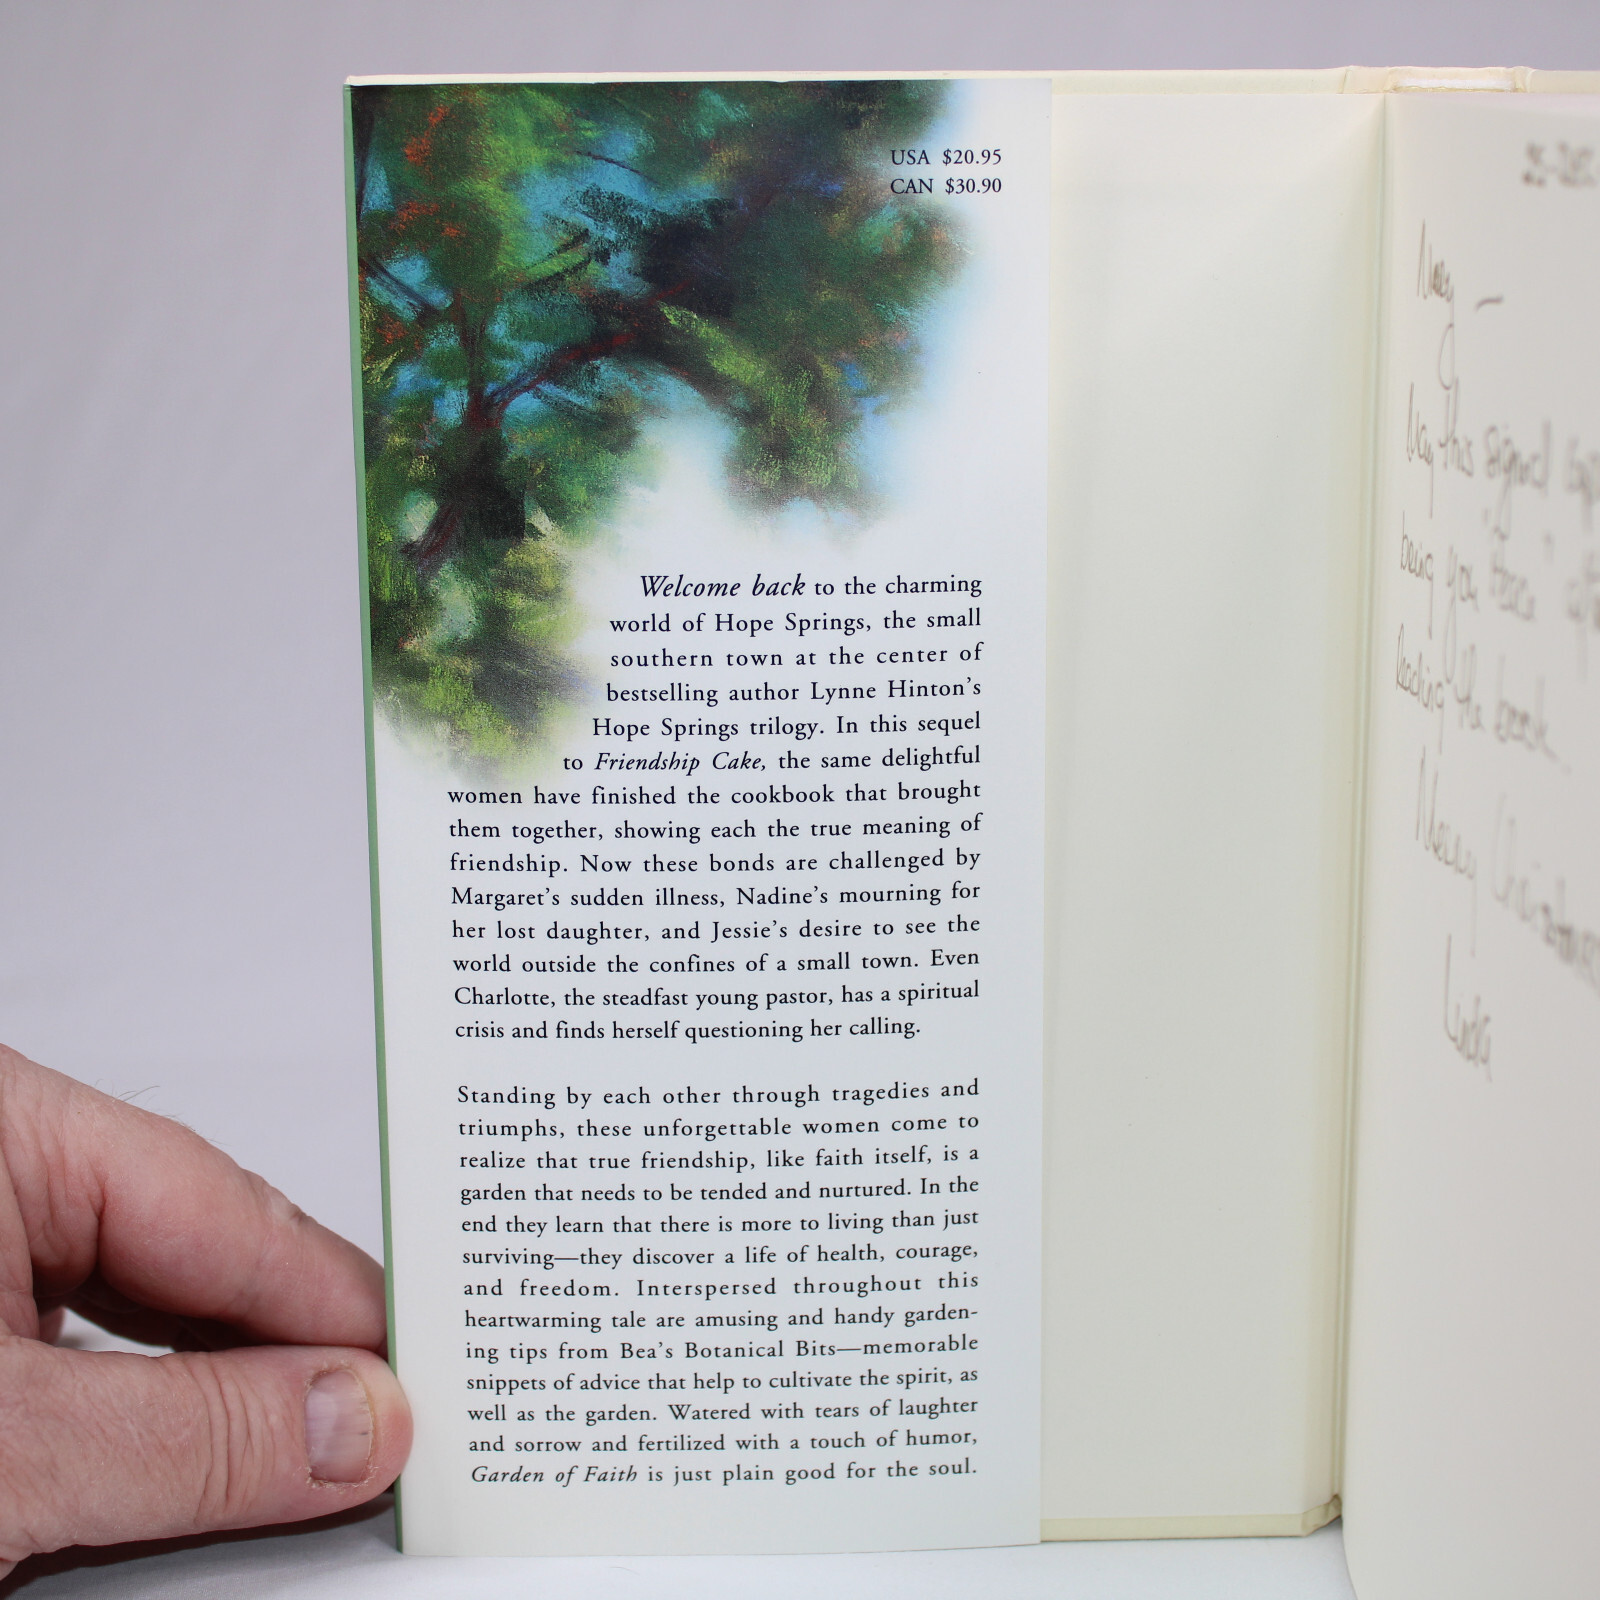 USA $20.95
CAN $30.90
Welcome back to the charming
world of Hope Springs, the small
southern town at the center of
bestselling author Lynne Hinton's
Hope Springs trilogy. In this sequel
to Friendship Cake, the same delightful
women have finished the cookbook that brought
them together, showing each the true meaning of
friendship. Now these bonds are challenged by
Margaret's sudden illness, Nadine's mourning for
her lost daughter, and Jessie's desire to see the
world outside the confines of a small town. Even
Charlotte, the steadfast young pastor, has a spiritual
crisis and finds herself questioning her calling.
Standing by each other through tragedies and
triumphs, these unforgettable women come to
realize that true friendship, like faith itself, is a
garden that needs to be tended and nurtured. In the
end they learn that there is more to living than just
surviving—they discover a life of health, courage,
and freedom. Interspersed throughout this
heartwarming tale are amusing and handy garden-
ing tips from Bea's Botanical Bits—memorable
snippets of advice that help to cultivate the spirit, as
well as the garden. Watered with tears of laughter
and sorrow and fertilized with a touch of humor,
Garden of Faith is just plain good for the soul.
May this signed
being you
Reading the book.
Merry